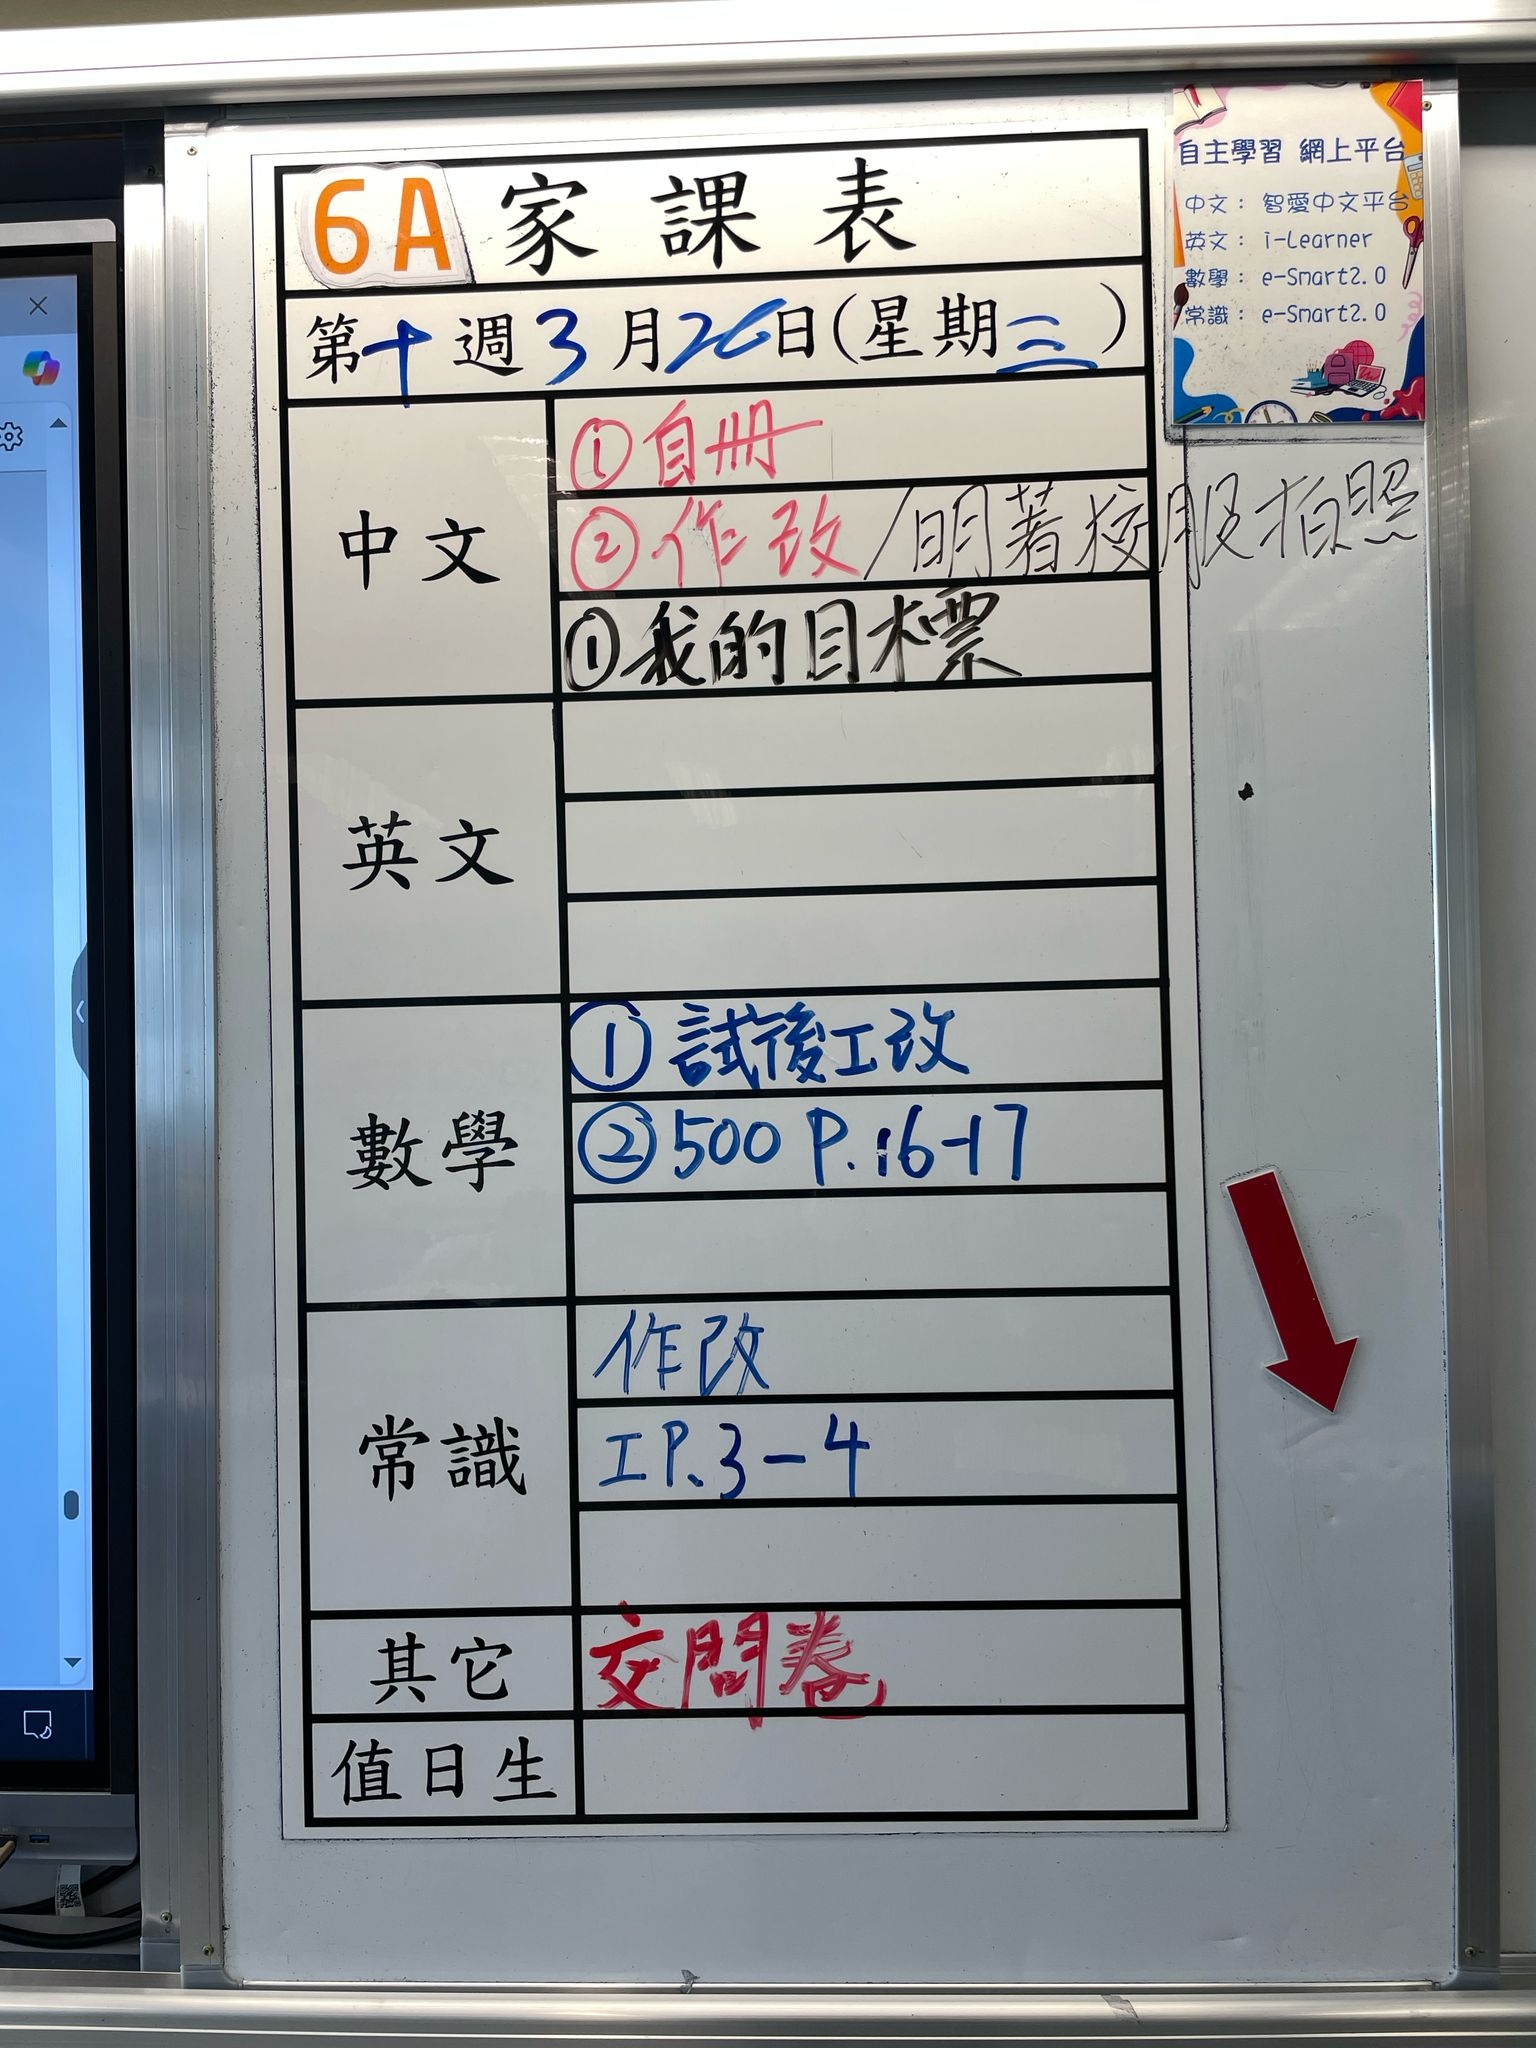 6A 家課表
第十週3月26日(星期三)
中文
①自冊
②作改/明著校服拍照
①我的目標
英文
數學
①試後工改
②500 P.16-17
常識
作改
工P.3-4
其它
交問卷
值日生
自主學習 網上平台
中文：智愛中文平台
英文：i-Learner
數學：e-Smart2.0
常識：e-Smart2.0